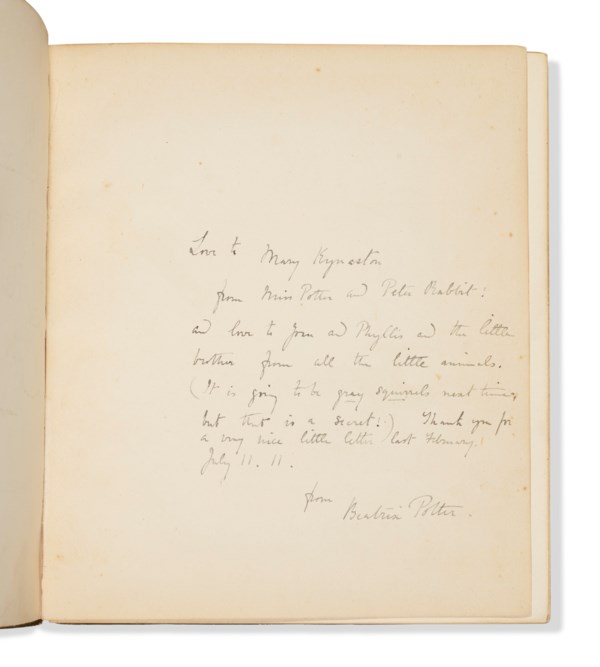 Love to Mary Kynaston
from Miss Potter and Peter Rabbit!
and love to Joan and Phyllis and the little
brother from all the little animals.
(It is going to be gray squirrels next time,
but that is a secret!) Thank you for
a very nice little letter last February!
July 11. 11.
from Beatrix Potter.